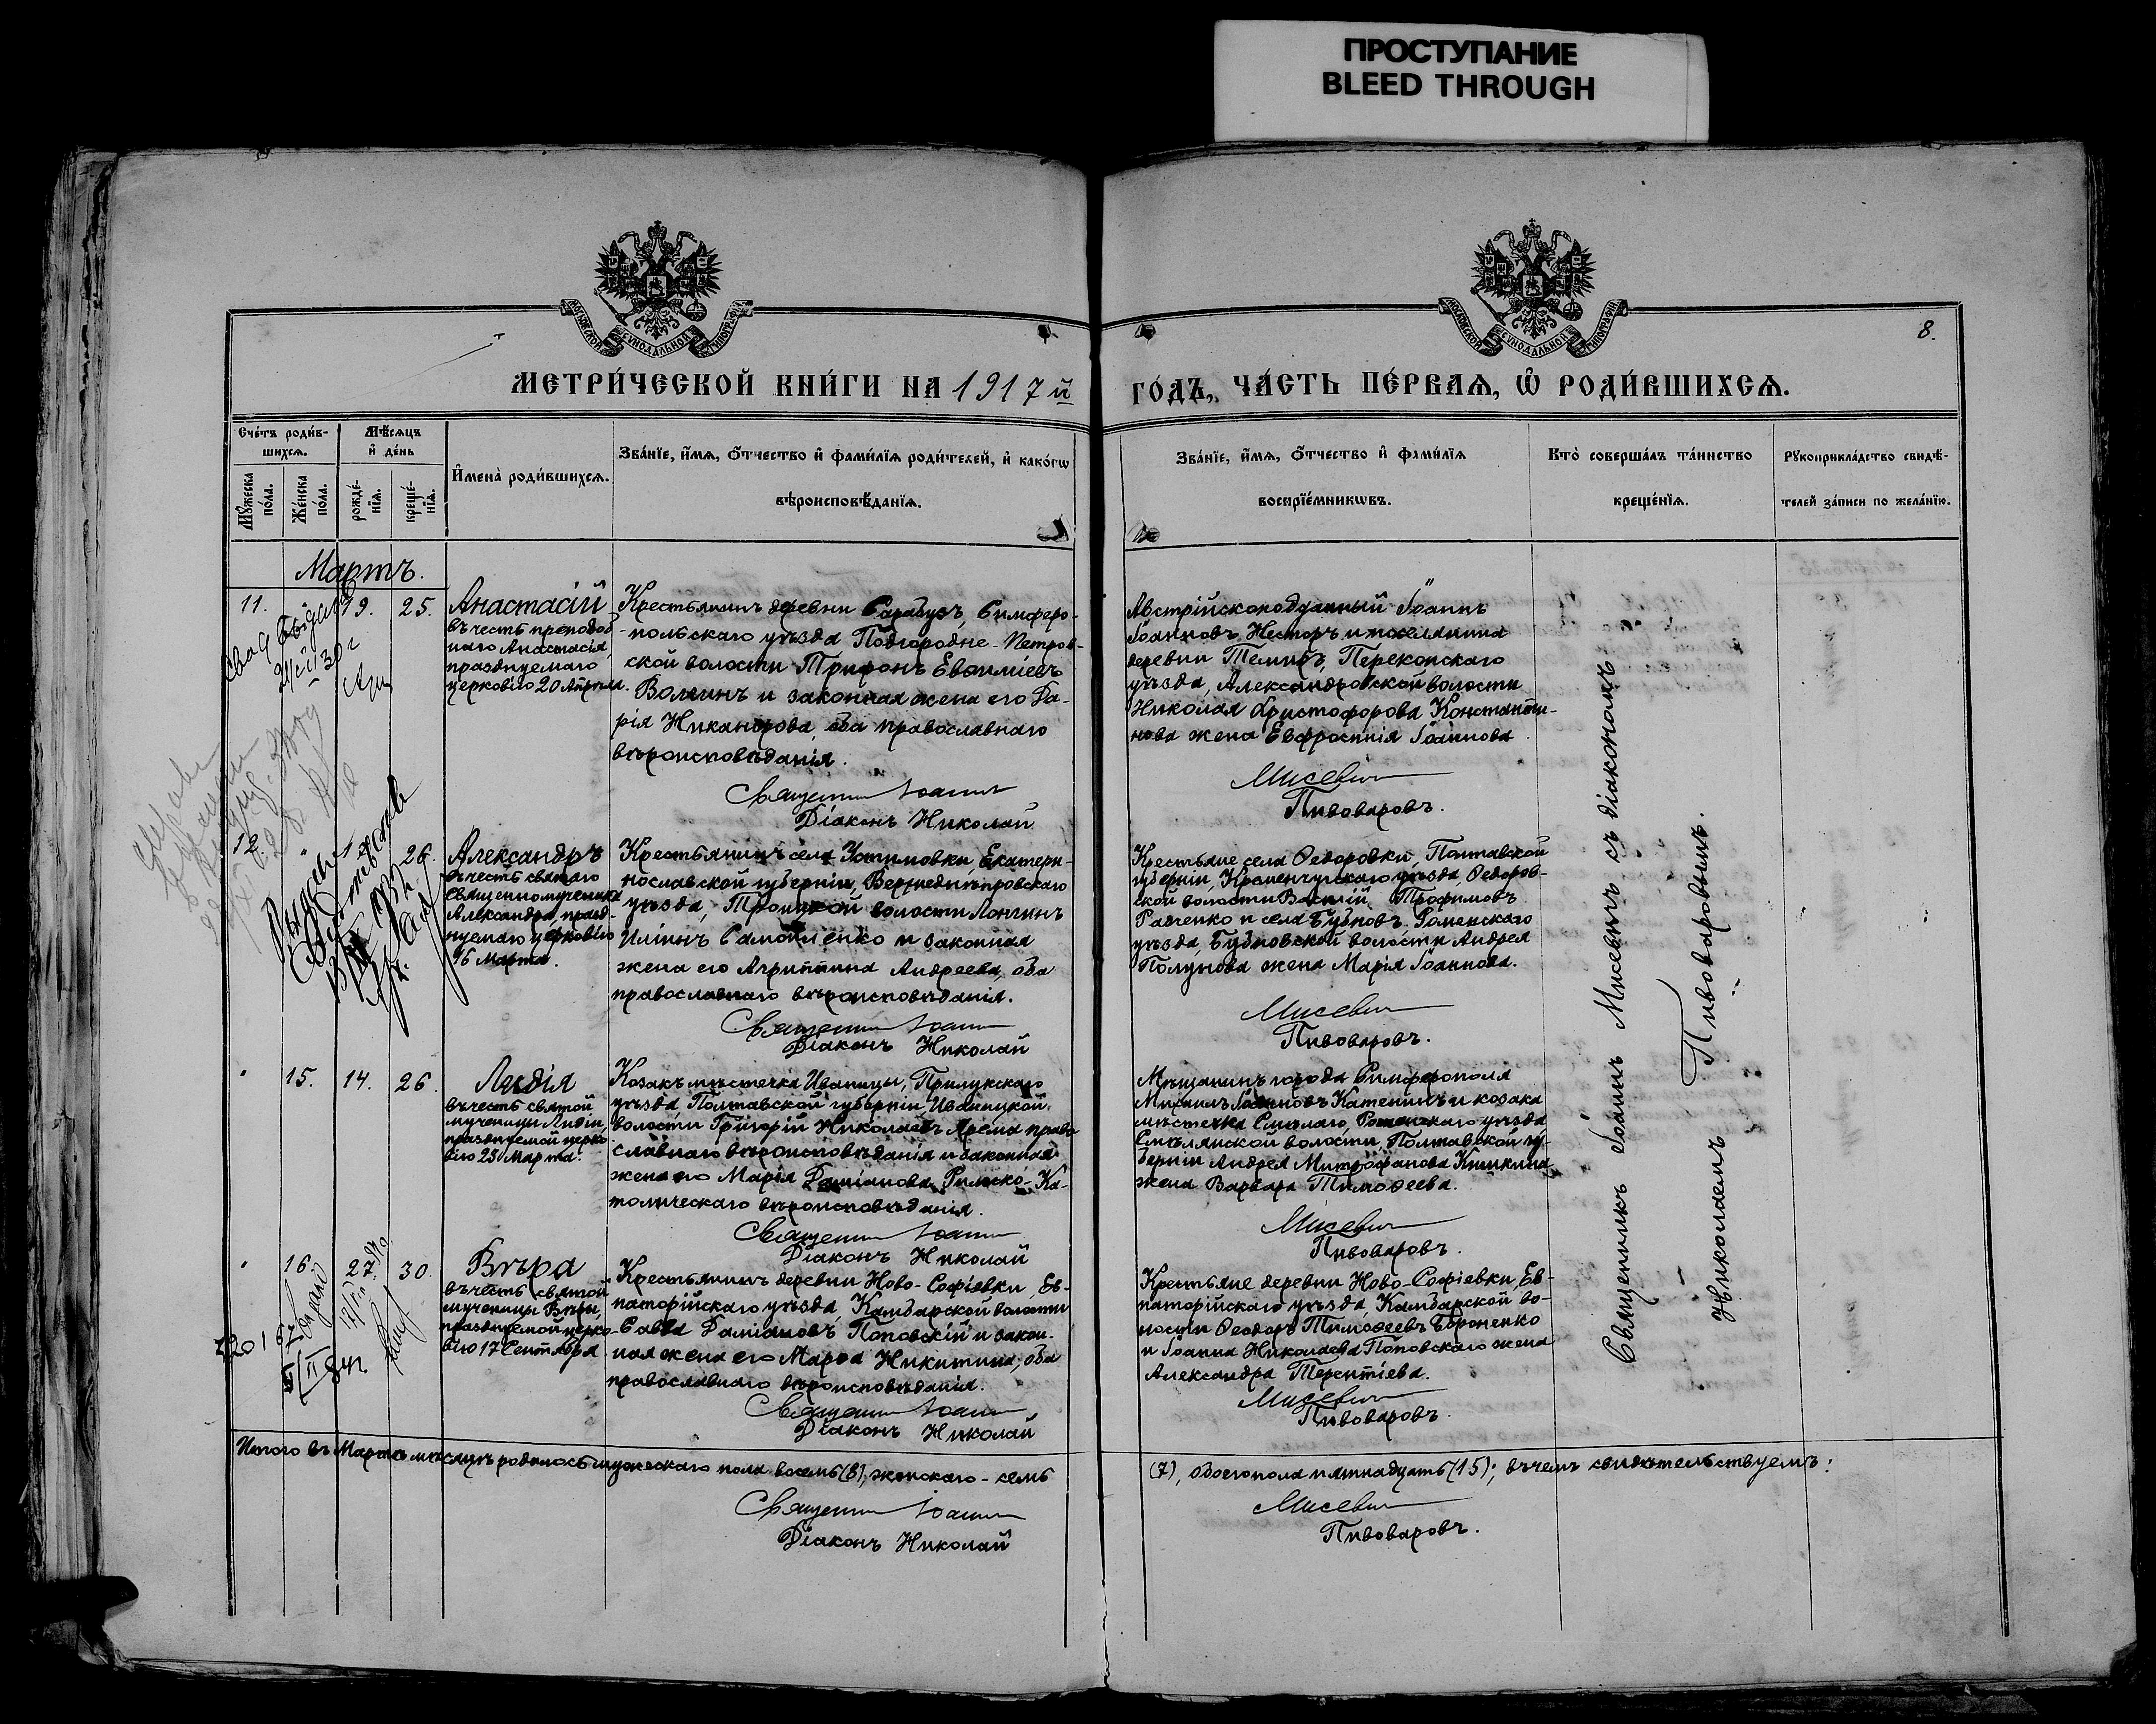 ПРОСТУПАНИЕ
BLEED THROUGH
МОСКОВСКОЙ СѴНОДАЛЬНОЙ ТИПОГРАФІИ
МОСКОВСКОЙ СѴНОДАЛЬНОЙ ТИПОГРАФІИ
8.
МЕТРИ́ЧЕСКОЙ КНИ́ГИ НА 1917 й
ГО́ДЪ, ЧА́СТЬ ПЕ́РВАѦ, Ѽ РОДИ́ВШИХСѦ.
Сче́тъ роди́в-
шихсѧ.
Мѣ́сѧцъ
и҆ де́нь
Мꙋ́жеска
по́ла.
Же́нска
по́ла.
рожде́-
нїѧ.
креще́-
нїѧ.
И҆мена̀ роди́вшихсѧ.
Зва́нїе, и҆́мѧ, ѻ҆́тчество и҆ фами́лїѧ роди́телей, и҆ како́гѡ
вѣроисповѣ́данїѧ.
Зва́нїе, и҆́мѧ, ѻ҆́тчество и҆ фами́лїѧ
воспрїе́мникѡвъ.
Кто̀ соверша́лъ та́инство
креще́нїѧ.
Рꙋкоприкла́дство свидѣ́-
телей за́писи по жела́нїю.
Мартъ.
11.
19.
25.
Анастасій
въ честь преподоб-
наго Анастасія,
празднуемаго
церковію 20 Апрѣля.
Крестьянинъ деревни Сарабузъ, Симферо-
-польскаго уѣзда, Подгородне-Петров-
ской волости Трифонъ Евѳиміевъ
Волгинъ и законная жена его Да-
рія Никанорова, оба православнаго
вѣроисповѣданія.
Священникъ Іоаннъ
Діаконъ Николай
Австрійскоподданный Іоаннъ
Іоанновъ Несторъ и поселянина
деревни Темиръ, Перекопскаго
уѣзда, Александровской волости
Николая Христофорова Константи-
нова жена Евфросинія Іоаннова.
Мисевичъ
Пивоваровъ.
12.
"
26.
Александръ
въ честь святаго
священномученика
Александра, празд-
нуемаго церковію
16 Марта.
Крестьянинъ села Устиновки, Екатери-
нославской губерніи, Верхнеднѣпровскаго
уѣзда, Троицкой волости Лонгинъ
Иліинъ Самойленко и законная
жена его Агриппина Андреева, оба
православнаго вѣроисповѣданія.
Священникъ Іоаннъ
Діаконъ Николай
Крестьяне села Ѳедоровки, Полтавской
губерніи, Кременчугскаго уѣзда, Ѳедоров-
ской волости Василій Трофимовъ
Радченко и села Бубновъ, Роменскаго
уѣзда, Бубновской волости Андрея
Полунова жена Марія Іоаннова.
Мисевичъ
Пивоваровъ.
"
15.
14.
26
Лидія
въ честь святой
мученицы Лидіи,
празднуемой церко-
вію 23 Марта.
Козакъ мѣстечка Иваницы, Прилукскаго
уѣзда, Полтавской губерніи, Иваницкой
волости Григорій Николаевъ Ярема право-
славнаго вѣроисповѣданія и законная
жена его Марія Даміанова Римско-Ка-
толическаго вѣроисповѣданія.
Священникъ Іоаннъ
Діаконъ Николай
Мѣщанинъ города Симферополя
Михаилъ Іоанновъ Катенинъ и козака
мѣстечка Смѣлаго, Роменскаго уѣзда
Смѣлянской волости, Полтавской гу-
берніи Андрея Митрофанова Кишкина
жена Варвара Тимоѳеева.
Мисевичъ
Пивоваровъ.
"
16.
27.
30.
Вѣра
въ честь святой
мученицы Вѣры,
празднуемой церко-
вію 17 Сентября.
Крестьянинъ деревни Ново-Софіевки, Ев-
паторійскаго уѣзда, Камбарской волости
Савва Даміановъ Поповскій и закон-
ная жена его Марѳа Никитина, оба
православнаго вѣроисповѣданія.
Священникъ Іоаннъ
Діаконъ Николай
Крестьяне деревни Ново-Софіевки, Ев-
паторійскаго уѣзда, Камбарской во-
лости Ѳеодоръ Тимоѳеевъ Бороненко
и Іоанна Николаева Поповскаго жена
Александра Терентіева.
Мисевичъ
Пивоваровъ.
Священникъ Іоаннъ Мисевичъ съ діакономъ
Николаемъ Пивоваровымъ.
Итого въ Мартѣ мѣсяцѣ родилось мужескаго пола восемь (8), женскаго - семь
(7), обоего пола пятнадцать (15); въ чемъ свидѣтельствуемъ:
Священникъ Іоаннъ
Діаконъ Николай
Мисевичъ
Пивоваровъ.